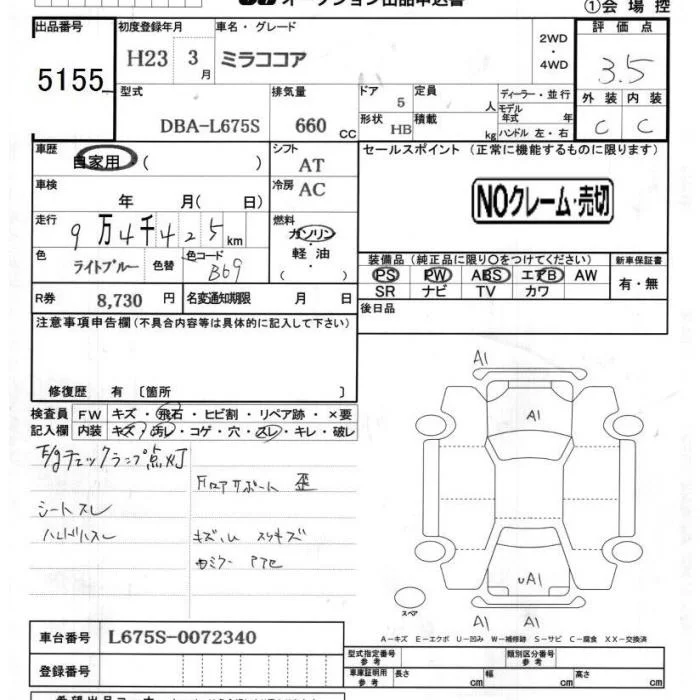 オークション出品申込書
①会場控
出品番号 5155
初度登録年月 H23 3月
車名・グレード ミラココア
2WD・4WD
評価点 3.5
外装 内装
C C
型式 DBA-L675S
排気量 660 cc
ドア 5
定員 人
形状 HB
積載 kg
ディーラー・並行
モデル年式 年
ハンドル 左・右
車歴 自家用 ( )
シフト AT
車検 年 月(日)
冷房 AC
セールスポイント (正常に機能するものに限ります)
NOクレーム・売切
走行 9万4千425km
燃料 ガソリン・軽油・( )
色 ライトブルー 色替
色コード B69
装備品 (純正品に限り○をつけてください) 新車保証書
PS PW ABS エアB AW 有・無
SR ナビ TV カワ
R券 8,730 円
名変通知期限 月 日
後日品
注意事項申告欄 (不具合内容等は具体的に記入して下さい)
修復歴 有 〔箇所 〕
検査員記入欄
FW キズ・飛石・ヒビ割・リペア跡・×要
内装 キズ・汚レ・コゲ・穴・スレ・キレ・破レ
E/gチェックランプ点灯
フロアサポート 歪
シートスレ
ハンドルスレ
A1
A1
uA1
A1 A1
スペア
A-キズ E-エクボ U-凹み W-補修跡 S-サビ C-腐食 XX-交換済
車台番号 L675S-0072340
登録番号
型式指定番号 参考
類別区分番号 参考
車庫証明用 参考 長さ cm 幅 cm 高さ cm